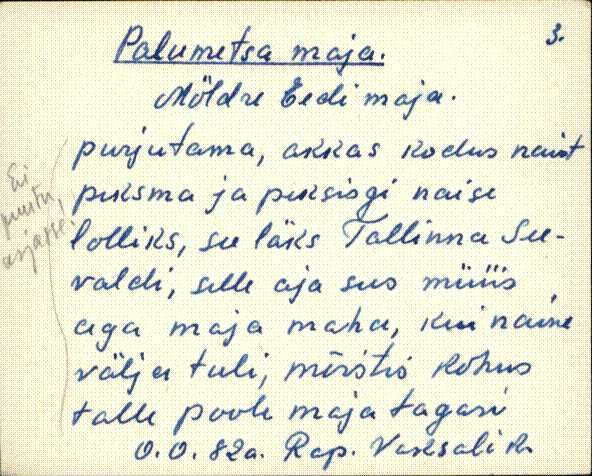 3.
Palumetsa maja.
Möldre Eedi maja.
purjutama, akkas kodus naist
peksma ja peksisgi naise
lolliks, see läks Tallinna See-
valdi, selle aja sees müüs
aga maja maha, kui naine
välja tuli, mõistis kohus
talle poole maja tagasi
O.O. 82a. Rap. Vaksali k.
Ei
puutu
asjasse.